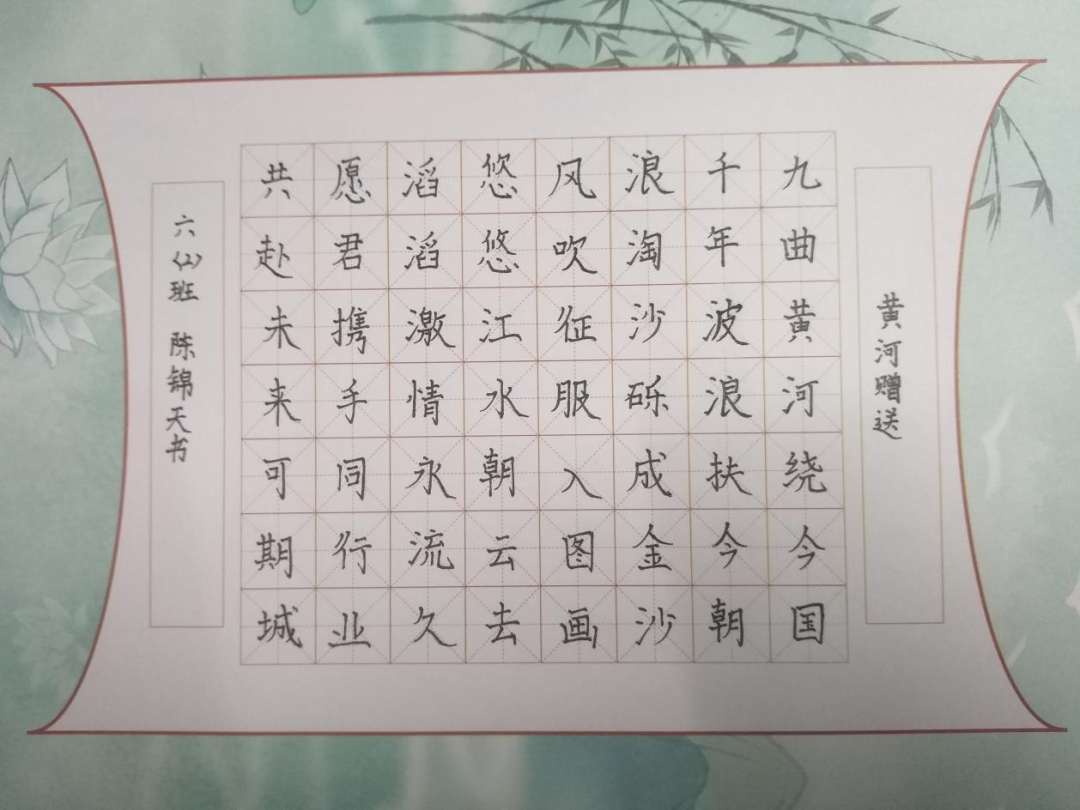 黄河赠送
九曲黄河绕今国
千年波浪扶今朝
浪淘沙砾成金沙
风吹征服入图画
悠悠江水朝云去
滔滔激情永流久
愿君携手同行业
共赴未来可期城
六(2)班 陈锦天书